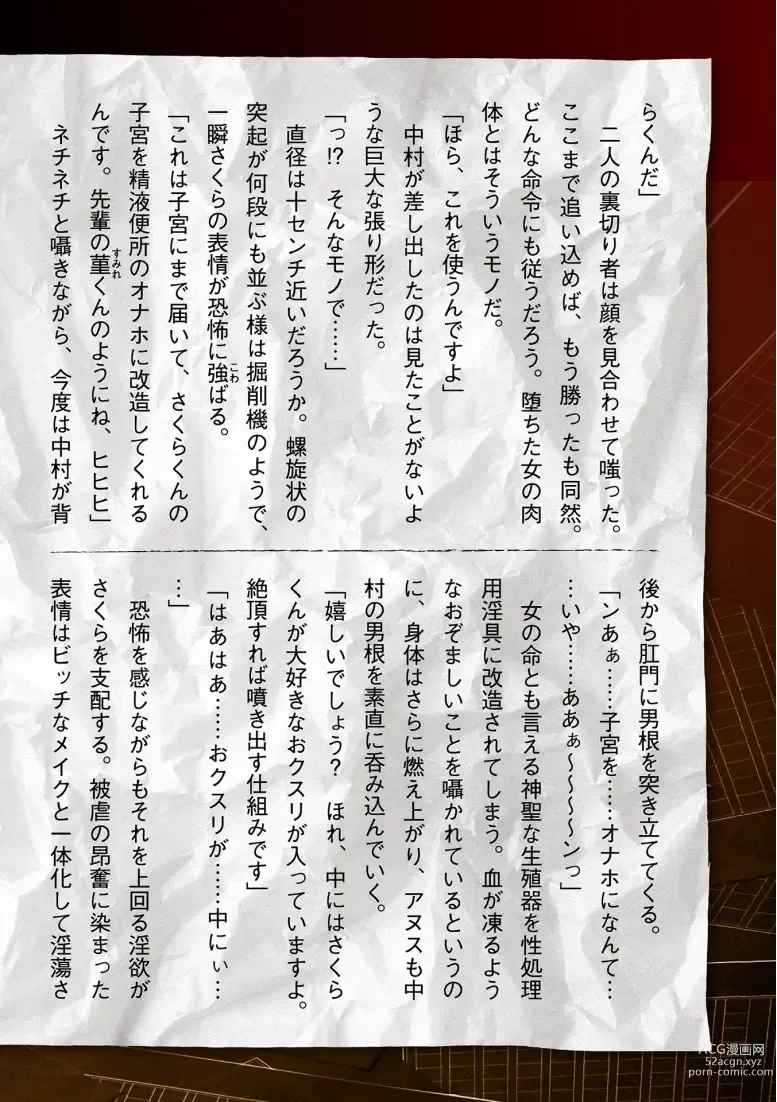 らくんだ」
　二人の裏切り者は顔を見合わせて嗤った。
ここまで追い込めば、もう勝ったも同然。
どんな命令にも従うだろう。堕ちた女の肉
体とはそういうモノだ。
「ほら、これを使うんですよ」
　中村が差し出したのは見たことがないよ
うな巨大な張り形だった。
「っ!?　そんなモノで……」
　直径は十センチ近いだろうか。螺旋状の
突起が何段にも並ぶ様は掘削機のようで、
一瞬さくらの表情が恐怖に強こわばる。
「これは子宮にまで届いて、さくらくんの
子宮を精液便所のオナホに改造してくれる
んです。先輩の菫すみれくんのようにね、ヒヒヒ」
　ネチネチと囁きながら、今度は中村が背
後から肛門に男根を突き立ててくる。
「ンあぁ……子宮を……オナホになんて…
…いや……ああぁ～～～～ンっ」
　女の命とも言える神聖な生殖器を性処理
用淫具に改造されてしまう。血が凍るよう
なおぞましいことを囁かれているというの
に、身体はさらに燃え上がり、アヌスも中
村の男根を素直に呑み込んでいく。
「嬉しいでしょう？　ほれ、中にはさくら
くんが大好きなおクスリが入っていますよ。
絶頂すれば噴き出す仕組みです」
「はあはあ……おクスリが……中にぃ…
…」
　恐怖を感じながらもそれを上回る淫欲が
さくらを支配する。被虐の昂奮に染まった
表情はビッチなメイクと一体化して淫蕩さ
ACG漫画网
52acgn.xyz
porn-comic.com